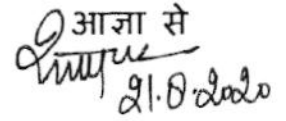 आज्ञा से
21.8.2020